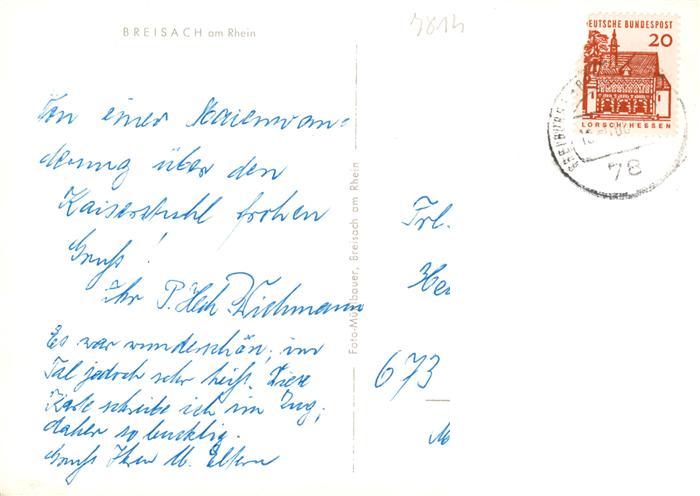 BREISACH am Rhein
7814
DEUTSCHE BUNDESPOST
20
LORSCH/HESSEN
78
Von einer Maienwan=
derung über den
Kaiserstuhl frohen
Gruß!
Ihr P. Wichmann
Es war wunderschön, im
Tal jedoch sehr heiß. Diese
Karte schreibe ich im Zug,
daher so bucklig.
Gruß Ihren Eltern
Foto-Mühlbauer, Breisach am Rhein
Frl.
Her
673